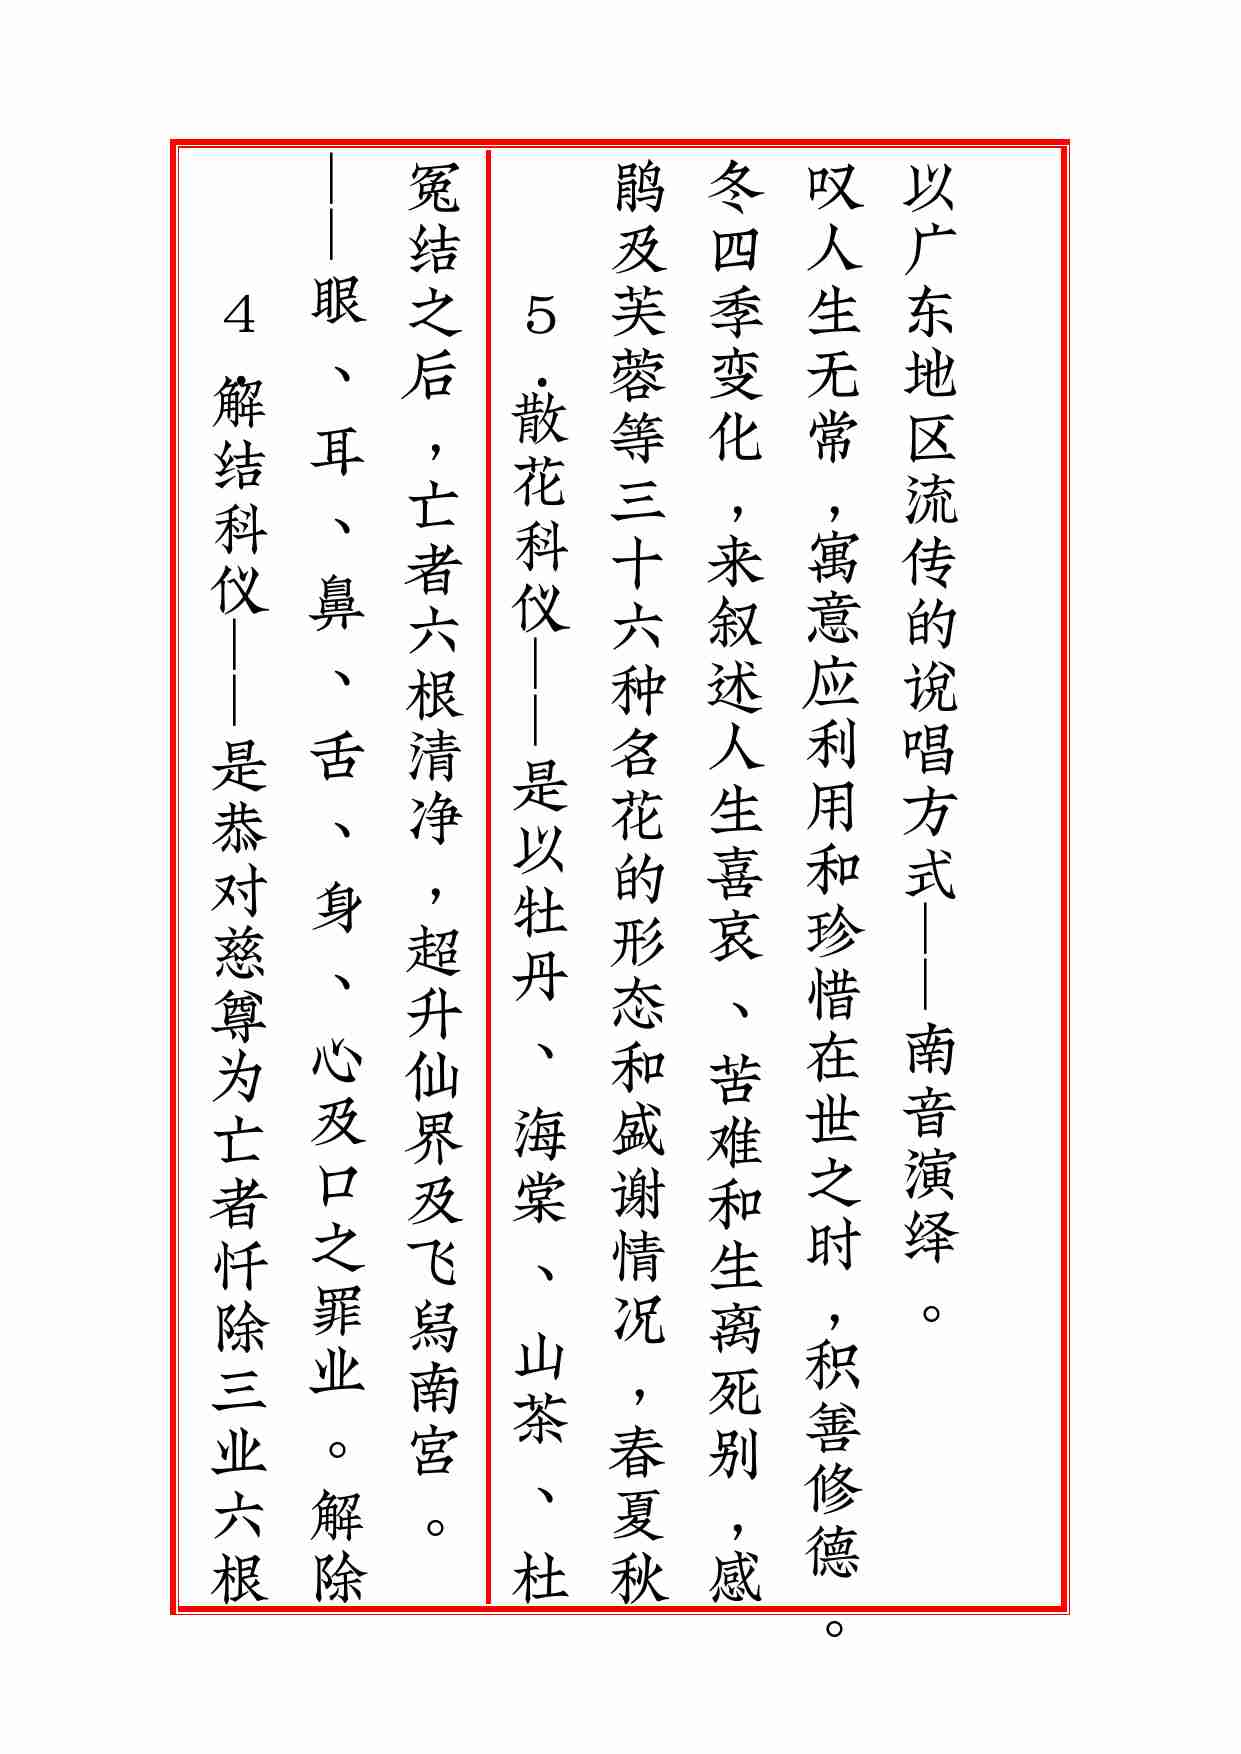 4.解结科仪——是恭对慈尊为亡者忏除三业六根
——眼、耳、鼻、舌、身、心及口之罪业。解除
冤结之后，亡者六根清净，超升仙界及飞舄南宮。
5.散花科仪——是以牡丹、海棠、山茶、杜
鹃及芙蓉等三十六种名花的形态和盛谢情况，春夏秋
冬四季变化，来叙述人生喜哀、苦难和生离死别，感
叹人生无常，寓意应利用和珍惜在世之时，积善修德。
以广东地区流传的说唱方式——南音演绎。